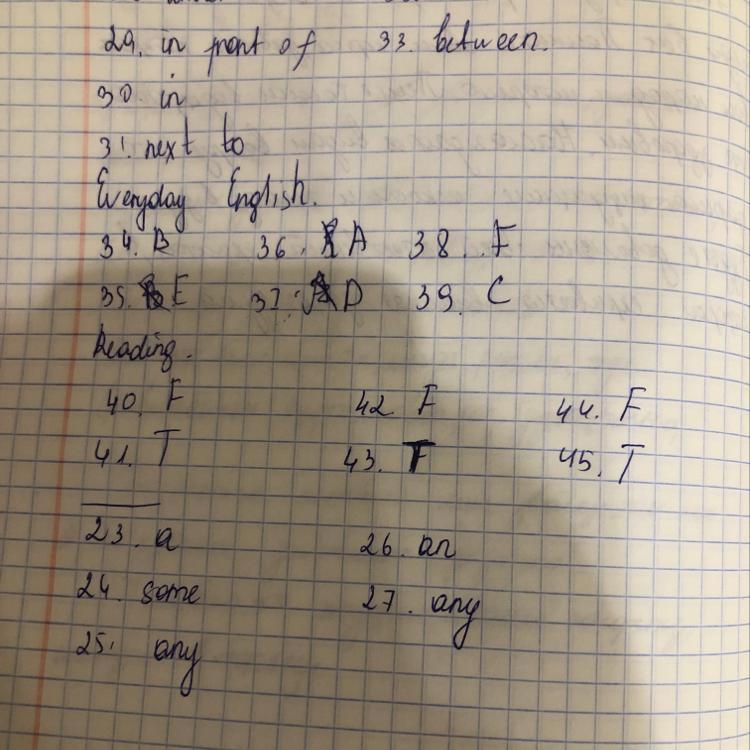 29. in front of 33. between.
30. in
31. next to
Everyday English.
34. B 36. A 38. F
35. E 37. D 39. C
Reading.
40. F 42. F 44. F
41. T 43. 45. T
23. a 26. an
24. some 27. any
25. any